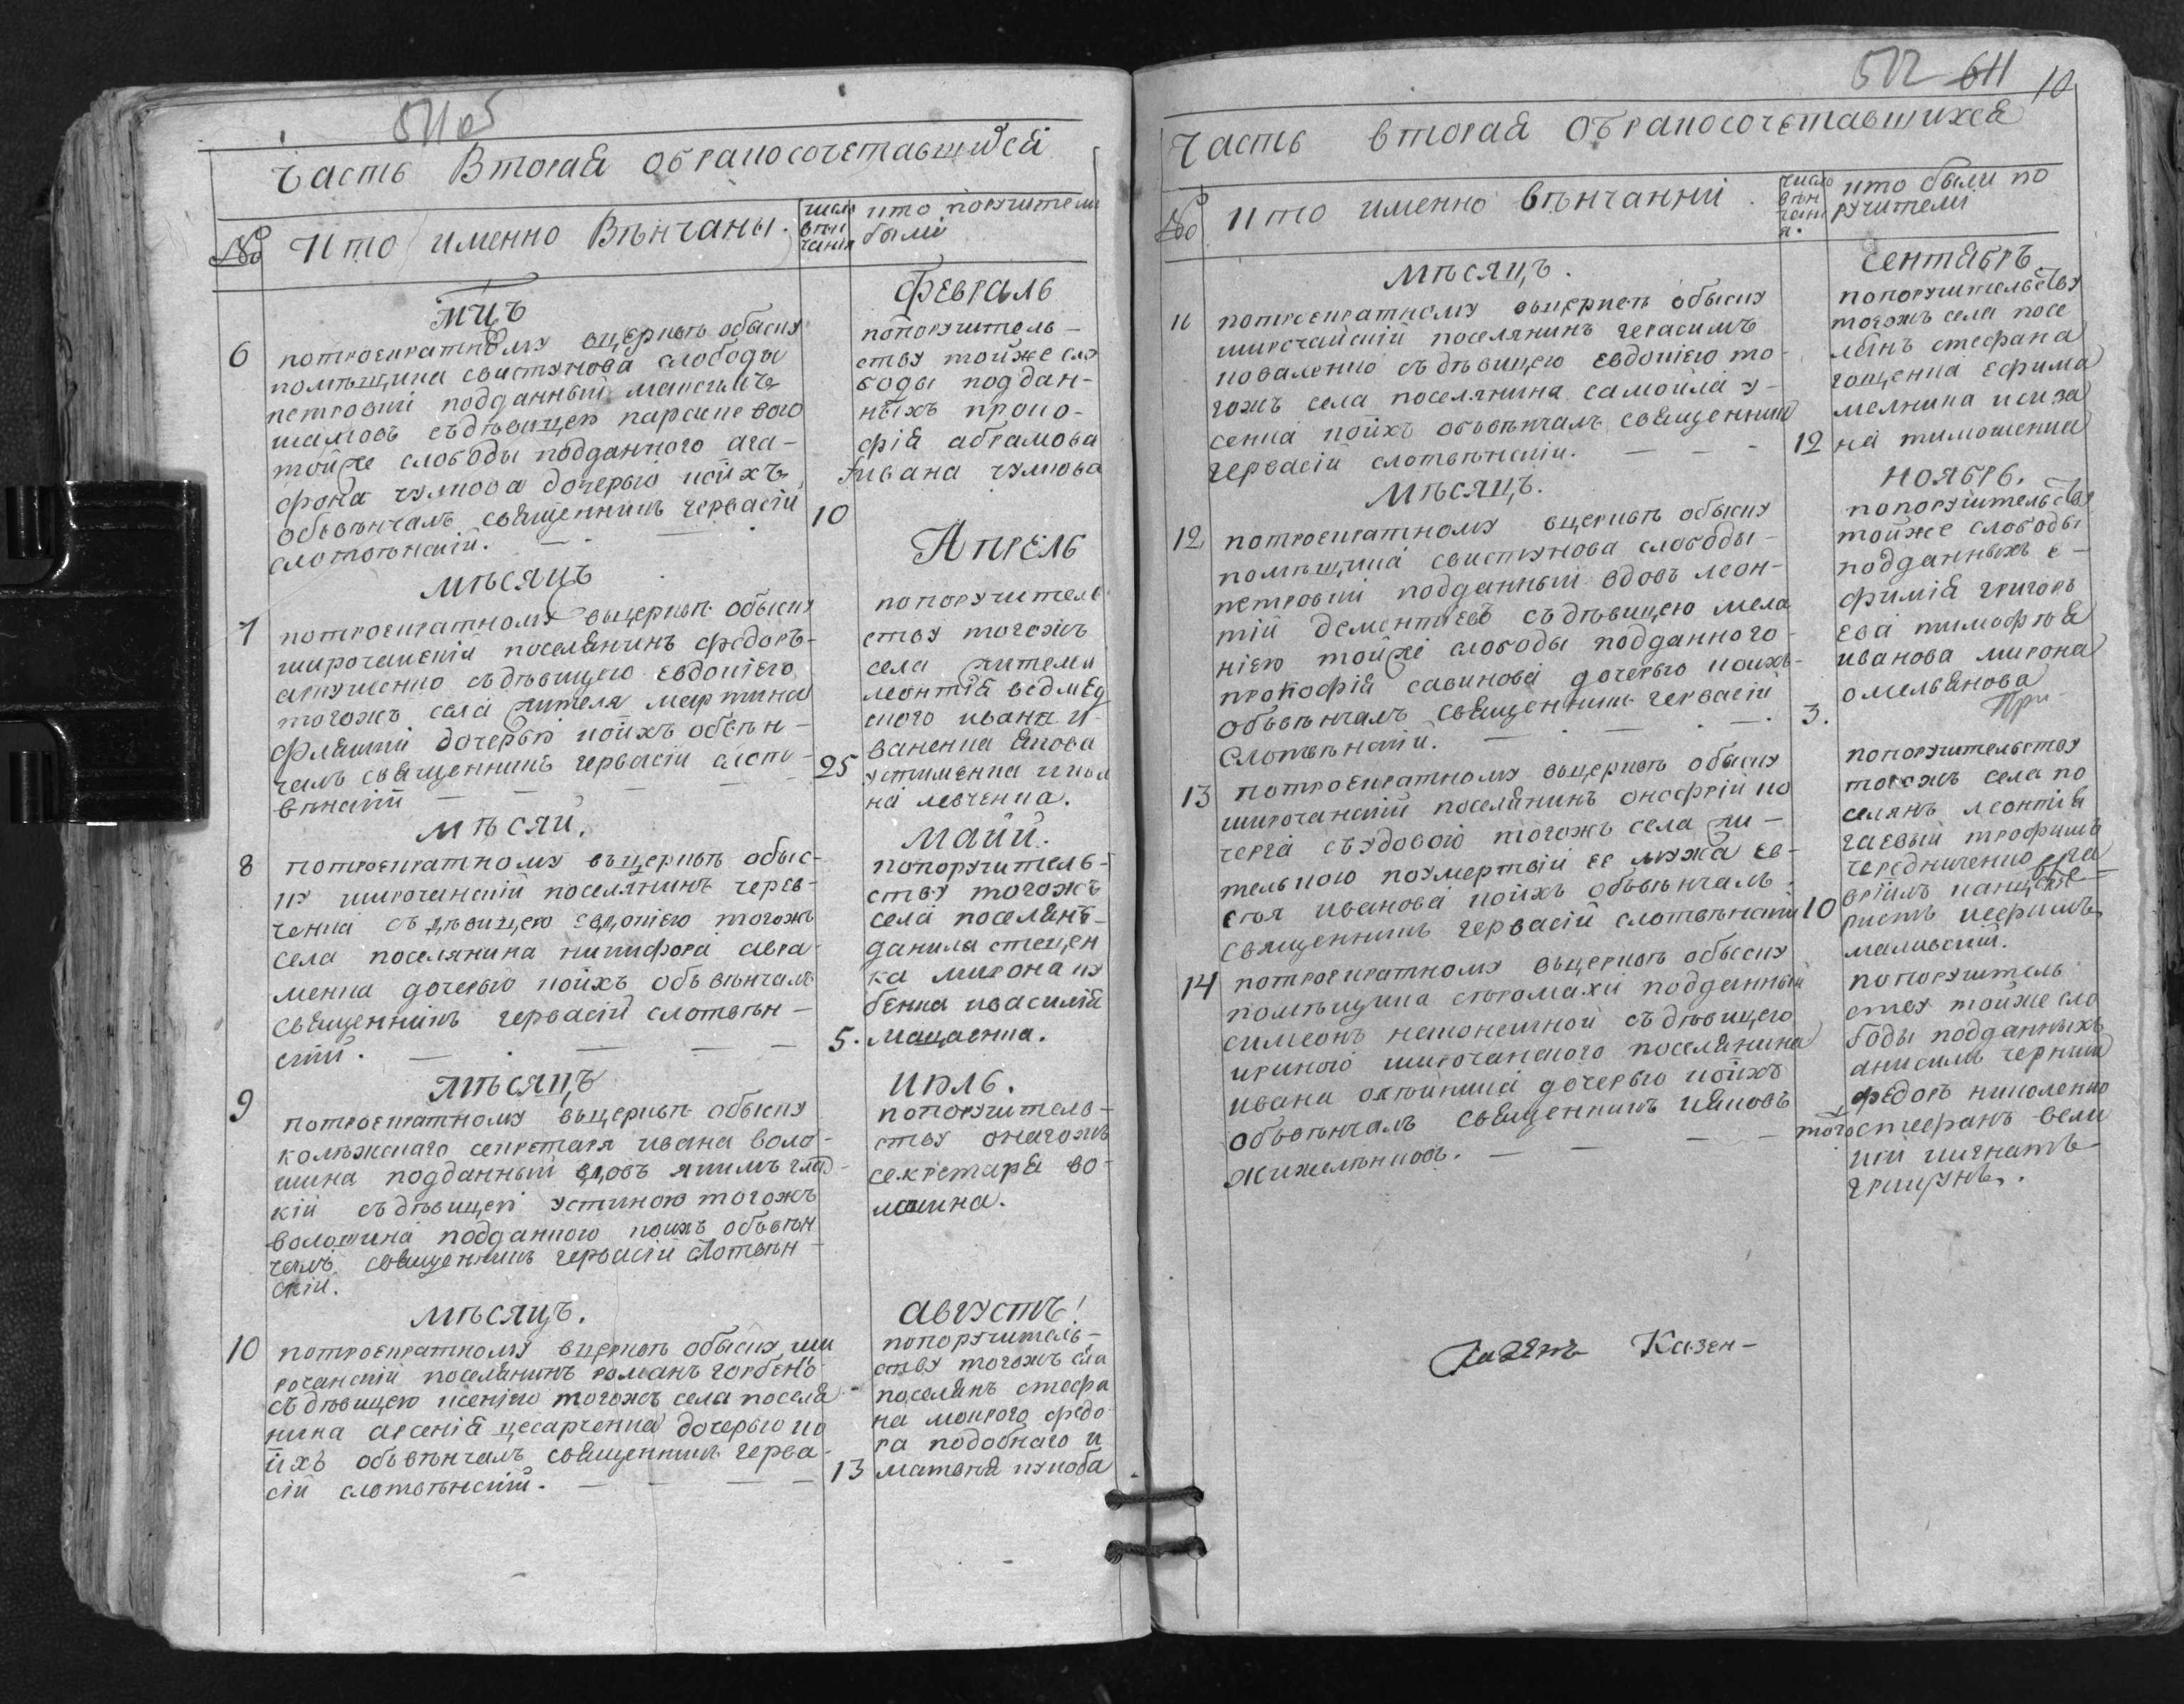 511об
Часть Вторая обраносочетавшихся
№ Кто именно Вѣнчаны.
число вѣнчания
кто поручители
были
Мцъ
Февраль
6 потроекратному вцерквѣ обыску
помѣщика свистунова слободы
петровки подданный максимъ
шамовъ съдѣвицею
тойже слободы подданного ага-
фона чулкова дочерью коихъ
обѣвѣнчалъ священникъ гервасій
слотвѣнскій.
10
попоручитель-
ству тойже сло
боды поддан-
ныхъ проко-
фія абрамова
Ивана чулкова
мѣсяцъ
Апрель
7 потроекратному вцерквѣ обыску
широчанскій поселянинъ федоръ
съдѣвицею евдокіею
тогожъ села жителя мартина
дочерью коихъ обвѣн-
чалъ священникъ гервасій слот-
вѣнскій
25
попоручитель
ству тогожъ
села жителя
леонтія ведмед
ского ивана и-
ваненка якова
устименка
левченка.
Мѣсяц.
Маій.
8 потроекратному въцерквѣ обыс-
ку широчанскій поселянинъ
съдѣвицею евдокіею тогожъ
села поселянина никифора авра-
менка дочерью коихъ объвѣнчалъ
священникъ гервасій слотвѣн-
скій.
5.
попоручитель-
ству тогожъ
села поселянъ
данила стецен
ка мирона ку
бенка ивасилія
мацаенка.
Мѣсяцъ
Июль.
9 потроекратному въцерквѣ обыску
колѣжскаго секретаря ивана воло-
шина подданный вдовъ якимъ глад-
кій съдѣвицею устиною тогожъ
волошина подданного коихъ объвѣн
чалъ священникъ гервасій слотвѣн-
скій.
попоручитель-
ству онагожъ
секретаря во-
лошина.
мѣсяцъ.
августъ
10 потроекратному вцерквѣ обыску ши
рочанскій поселянинъ романъ горбенко
съдѣвицею ксеніею тогожъ села поселя
нина арсенія цесарченка дочерью ко
ихъ объвѣнчалъ священникъ герва-
сій слотвѣнскій.
13
попоручитель-
ству тогожъ села
поселянъ стефа
на мокрого федо
ра подобнаго и
матвѣя
512 611 10
Часть вторая обраносочетавшихся
№ кто именно вѣнчанни.
число вѣнчания.
кто были по
ручители
Мѣсяцъ.
Сентябрь
11 потроекратному вцерквѣ обыску
широчайскій поселянинъ герасимъ
коваленко съдѣвицею евдокіею то-
гожъ села поселянина самойла у-
сенка коихъ объвѣнчалъ священникъ
гервасій слотвѣнскій.
12
попоручительству
тогожъ села посе
лянъ стефана
гощенка ефима
мелника
тимошенка
Мѣсяцъ.
Ноябрь.
12 потроекратному вцерквѣ обыску
помѣщика свистунова слободы-
петровки подданный вдовъ леон-
тій дементіевъ съдѣвицею мела
ніею тойже слободы подданного
прокофія савинова дочерью коихъ
объвѣнчалъ священникъ гервасій
Слотвѣнскій.
3.
попоручительству
тойже слободы
подданныхъ е-
фимія григорь
ева тимофѣя
иванова мирона
омельянова
13 потроекратному въцерквѣ обыску
широчанскій поселянинъ онофрій ко
черга съудовою тогожъ села жи-
тельною поумертвіи ее мужа
иванова коихъ объвѣнчалъ
священникъ гервасій слотвѣнскій
10
попоручительству
тогожъ села по
селянъ леонтія
трофимъ
чередниченко
малиевскій.
14 потроекратному въцерквѣ обыску
помѣщика сѣромахи подданный
симеонъ наконешной съдѣвицею
ириною широчанского поселянина
ивана дочерью коихъ
объвѣнчалъ священникъ іяковъ
жижелѣниовъ.
того
попоручитель
ству тойже сло
боды подданныхъ
анисимъ черный
федоръ николенко
стефанъ вели
кій игнатъ
гришунъ.
Казен-